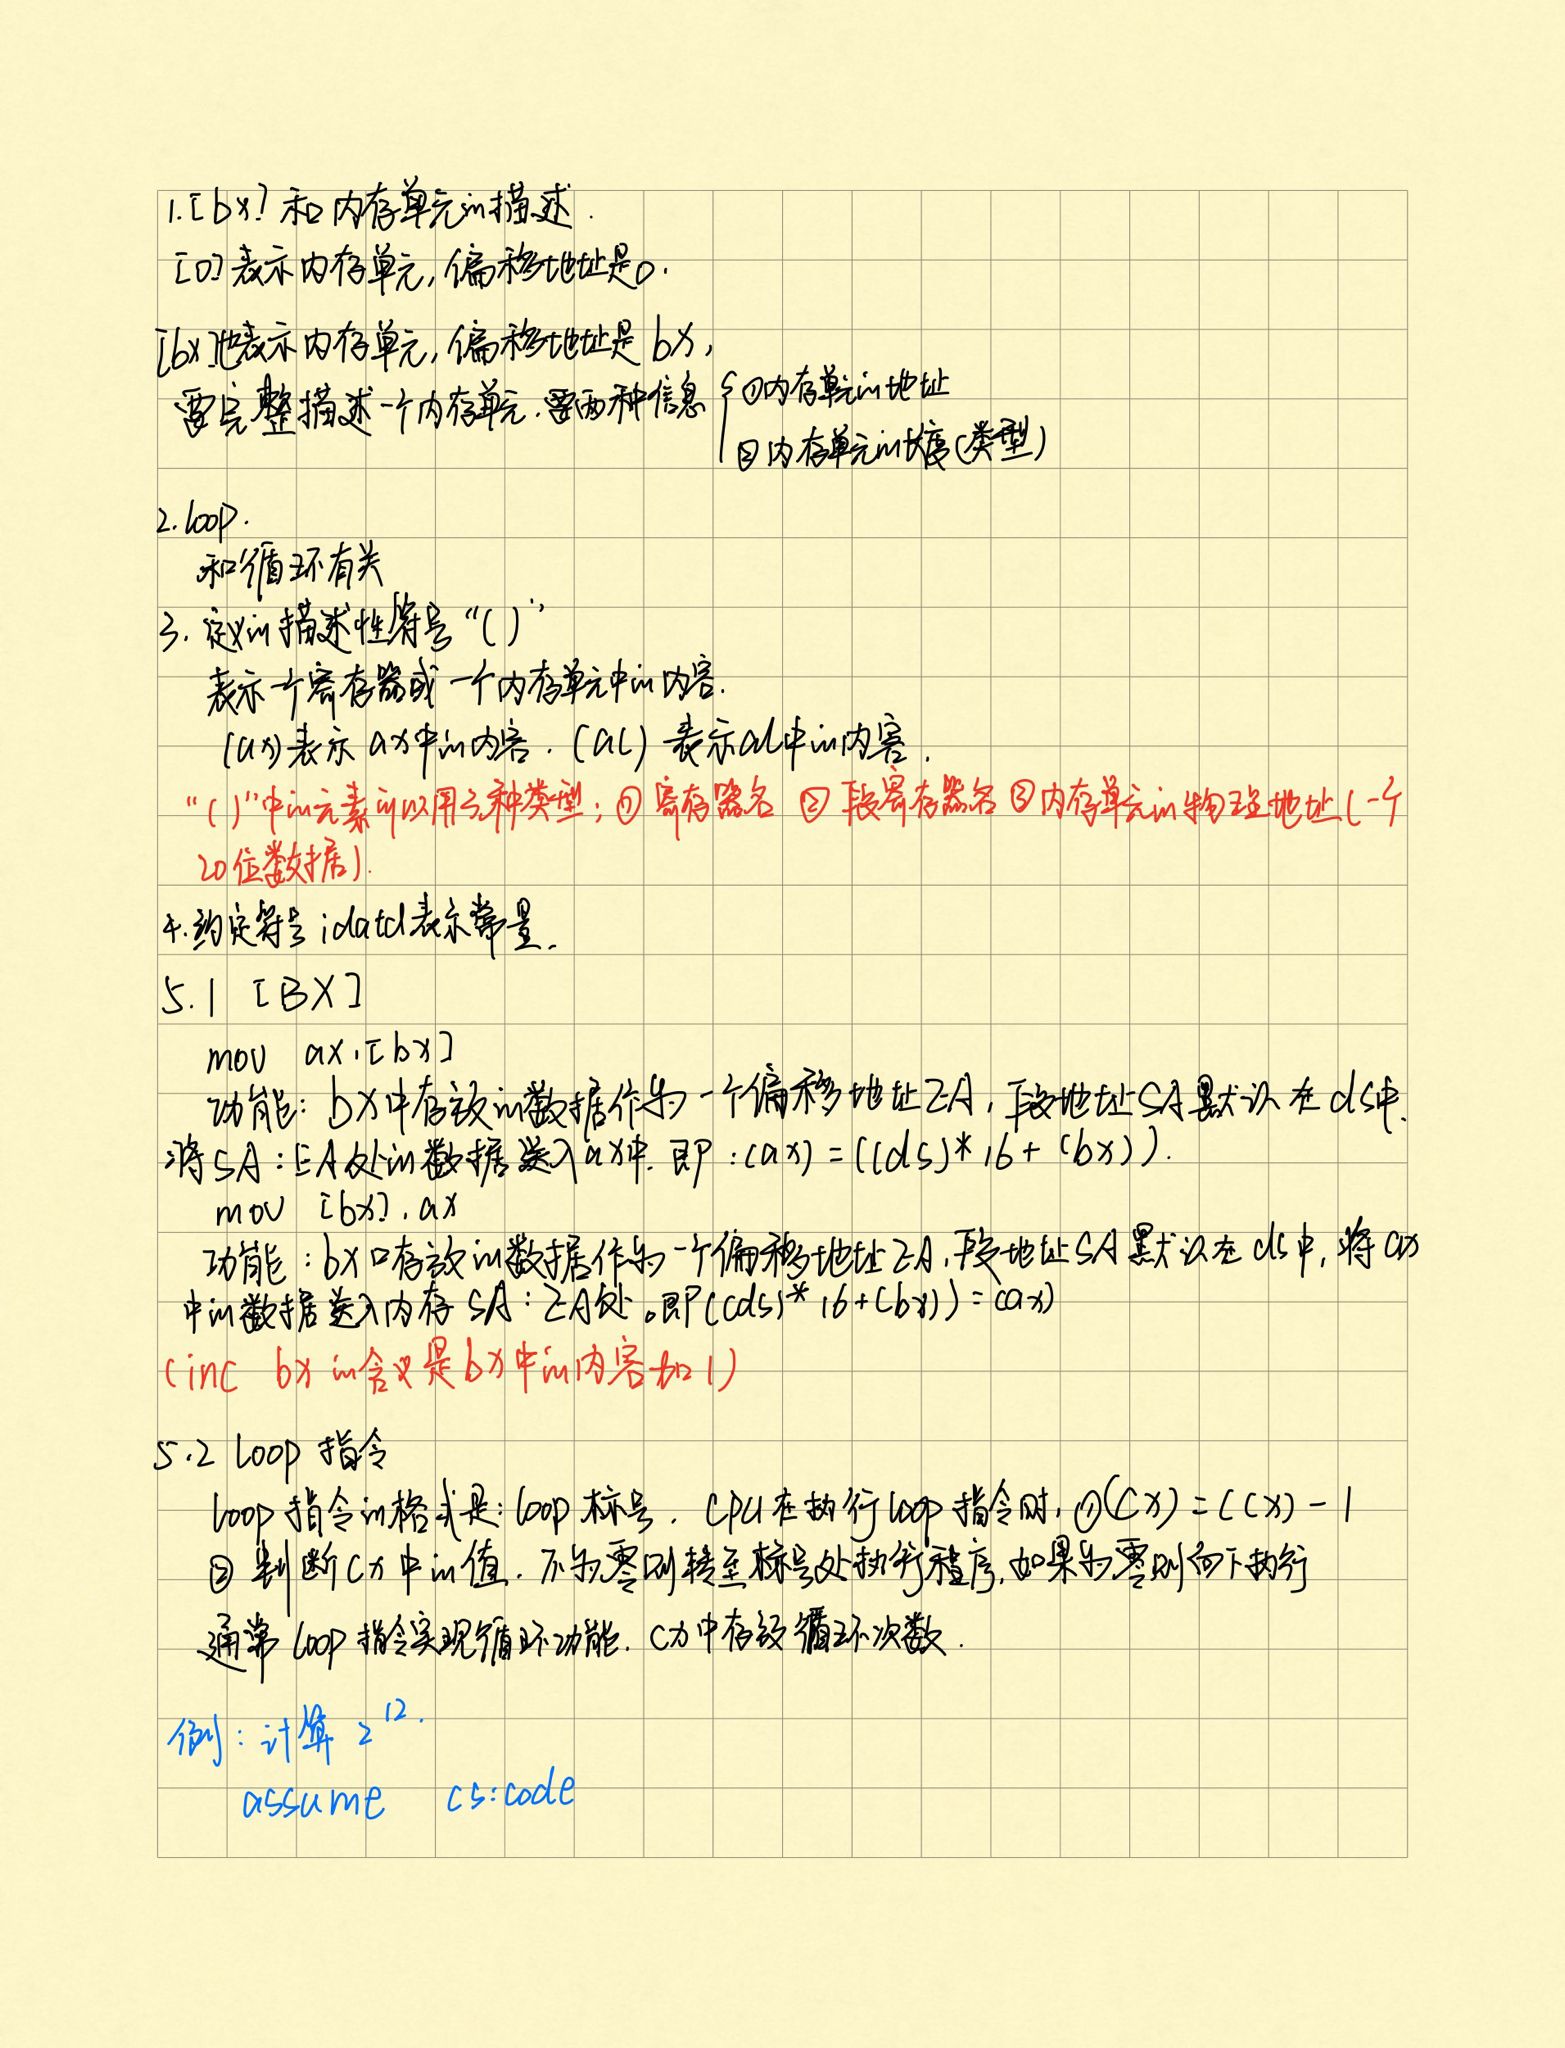 1.[bx]和内存单元的描述.
[0]表示内存单元,偏移地址是0.
[bx]也表示内存单元,偏移地址是bx,
要完整描述一个内存单元.要两种信息{①内存单元的地址
②内存单元的长度(类型)
2.loop.
和循环有关
3.定义的描述性符号“()”
表示一个寄存器或一个内存单元中的内容.
(ax)表示ax中的内容.(al)表示al中的内容.
“()”中的元素可以用3种类型:①寄存器名 ②段寄存器名 ③内存单元的物理地址(一个
20位数据).
4.约定符号idata表示常量.
5.1 [BX]
mov ax,[bx]
功能:bx中存放的数据作为一个偏移地址EA,段地址SA默认在ds中.
将SA:EA处的数据送入ax中.即:(ax)=((ds)*16+(bx)).
mov [bx],ax
功能:bx中存放的数据作为一个偏移地址EA,段地址SA默认在ds中,将ax
中的数据送入内存SA:EA处。即((ds)*16+(bx))=(ax)
(inc bx的含义是bx中的内容加1)
5.2 loop指令
loop指令的格式是:loop标号.CPU在执行loop指令时,①(cx)=(cx)-1
②判断cx中的值.不为零则转至标号处执行程序,如果为零则向下执行
通常loop指令实现循环功能.cx中存放循环次数.
例:计算2^12.
assume cs:code